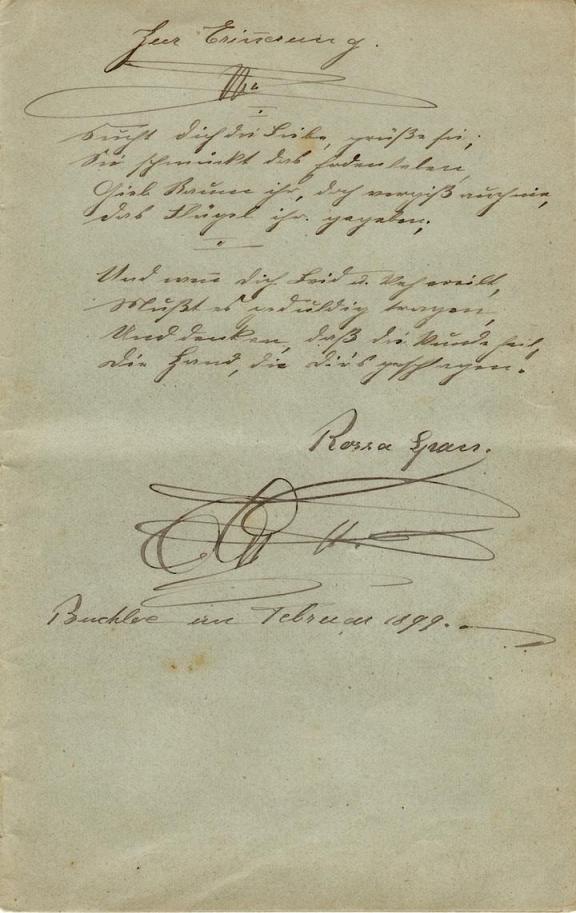 Zur Erinnerung.
Sucht dich die Liebe, grüße sie;
Sie schmückt das Erdenleben,
Gieb Raum ihr, doch vergiß auch nie,
das Flügel ihr gegeben;
Und wenn dich Leid u. Weh ereilt,
Mußt es geduldig tragen,
Und denken, daß die Wunde heilt,
Die Hand, die dirs geschlagen.
Rosa
Buchloe im Februar 1899.